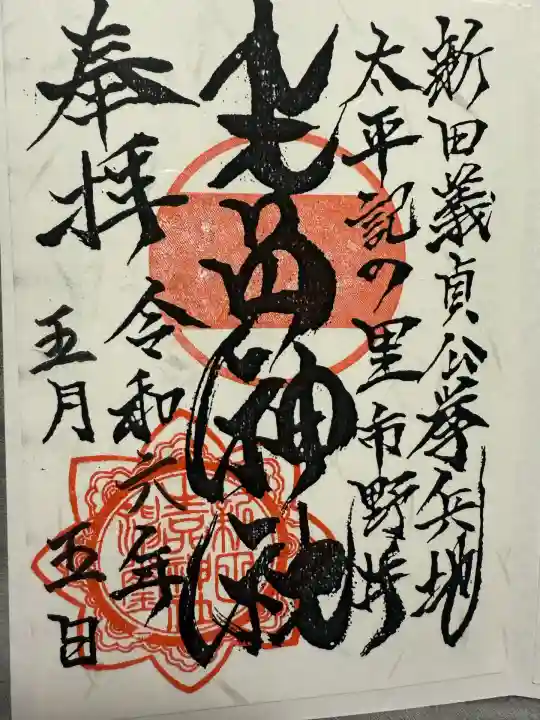 新田義貞公挙兵地
太平記の里市野井
生品神社
奉拝
令和六年
五月五日